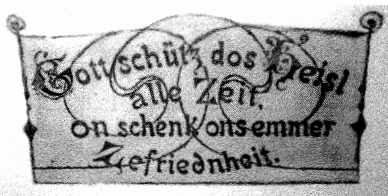 Gott schütz dos Heisl
alle Zeit,
on schenk ons emmer
Zefriednheit.